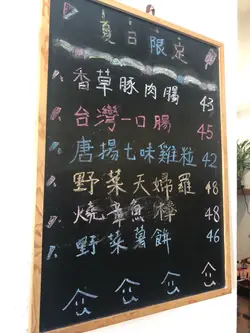 夏日限定
香草豚肉腸 43
台灣一口腸 45
唐揚七味雞粒 42
野菜天婦羅 48
燒章魚棒 48
野菜薯餅 46